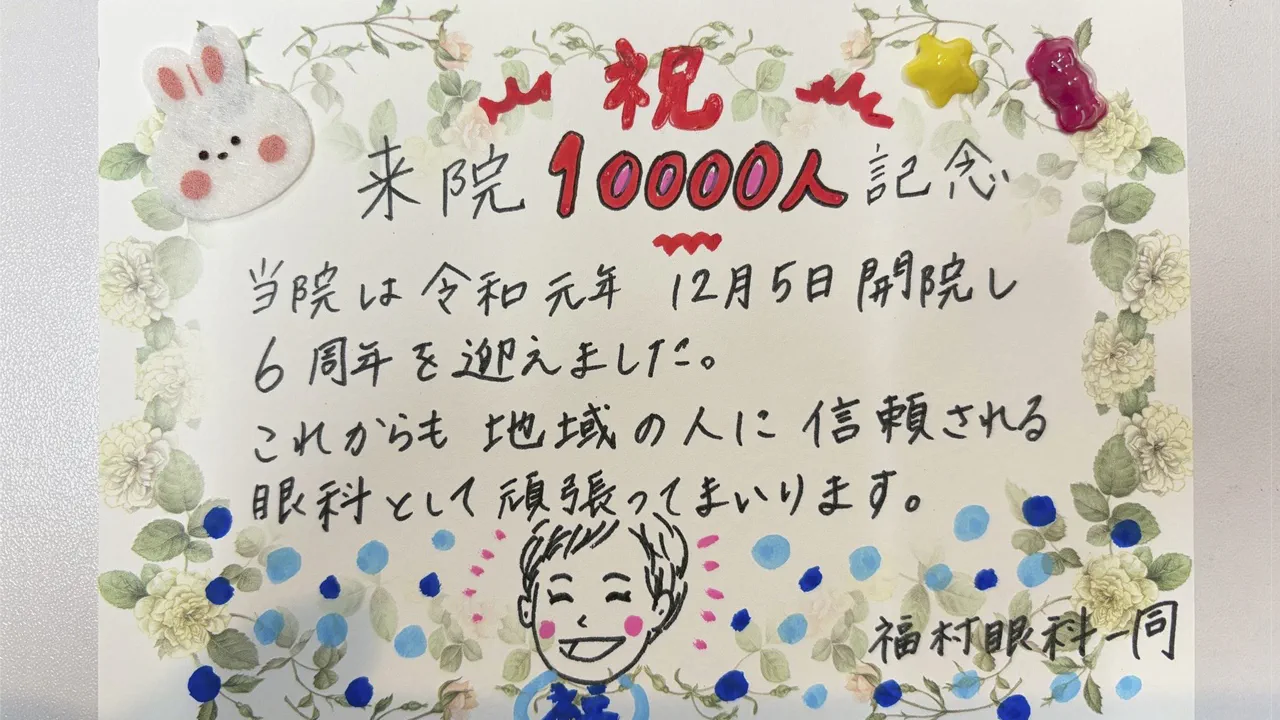 祝
来院10000人記念
当院は令和元年 12月5日開院し
6周年を迎えました。
これからも地域の人に信頼される
眼科として頑張ってまいります。
福村眼科一同